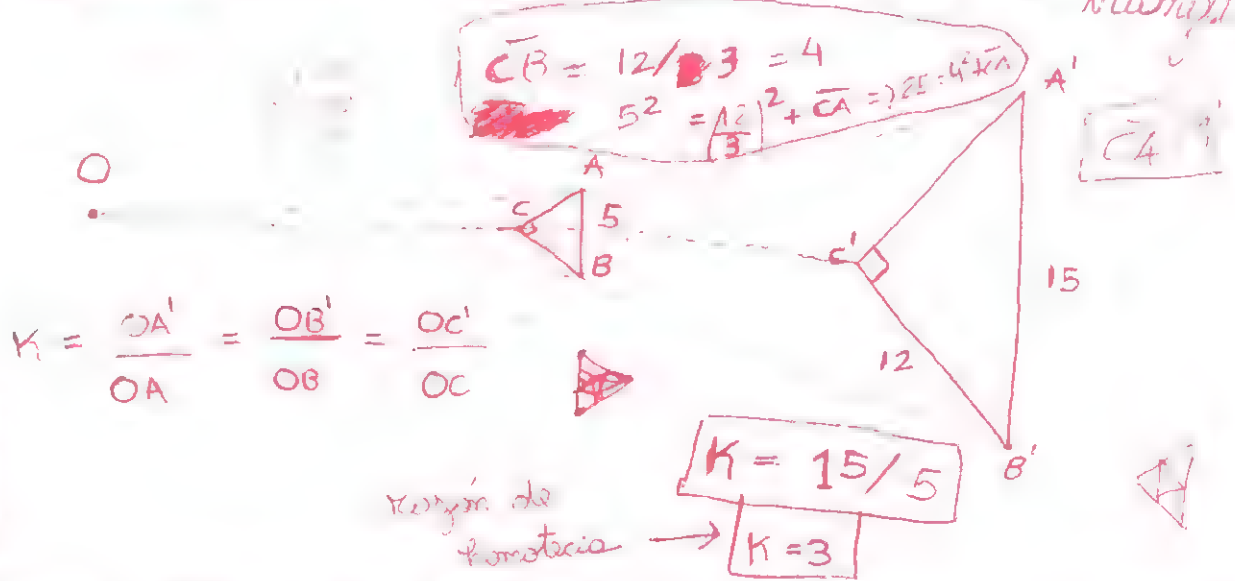 C̅B̅ = 12/3 = 4
5² = (12/3)² + C̅A̅ => 25 = 4² +
A'
O
A
C
5
B
C'
15
K = OA'/OA = OB'/OB = OC'/OC
12
B'
K = 15/5
razón de
homotecia → K = 3